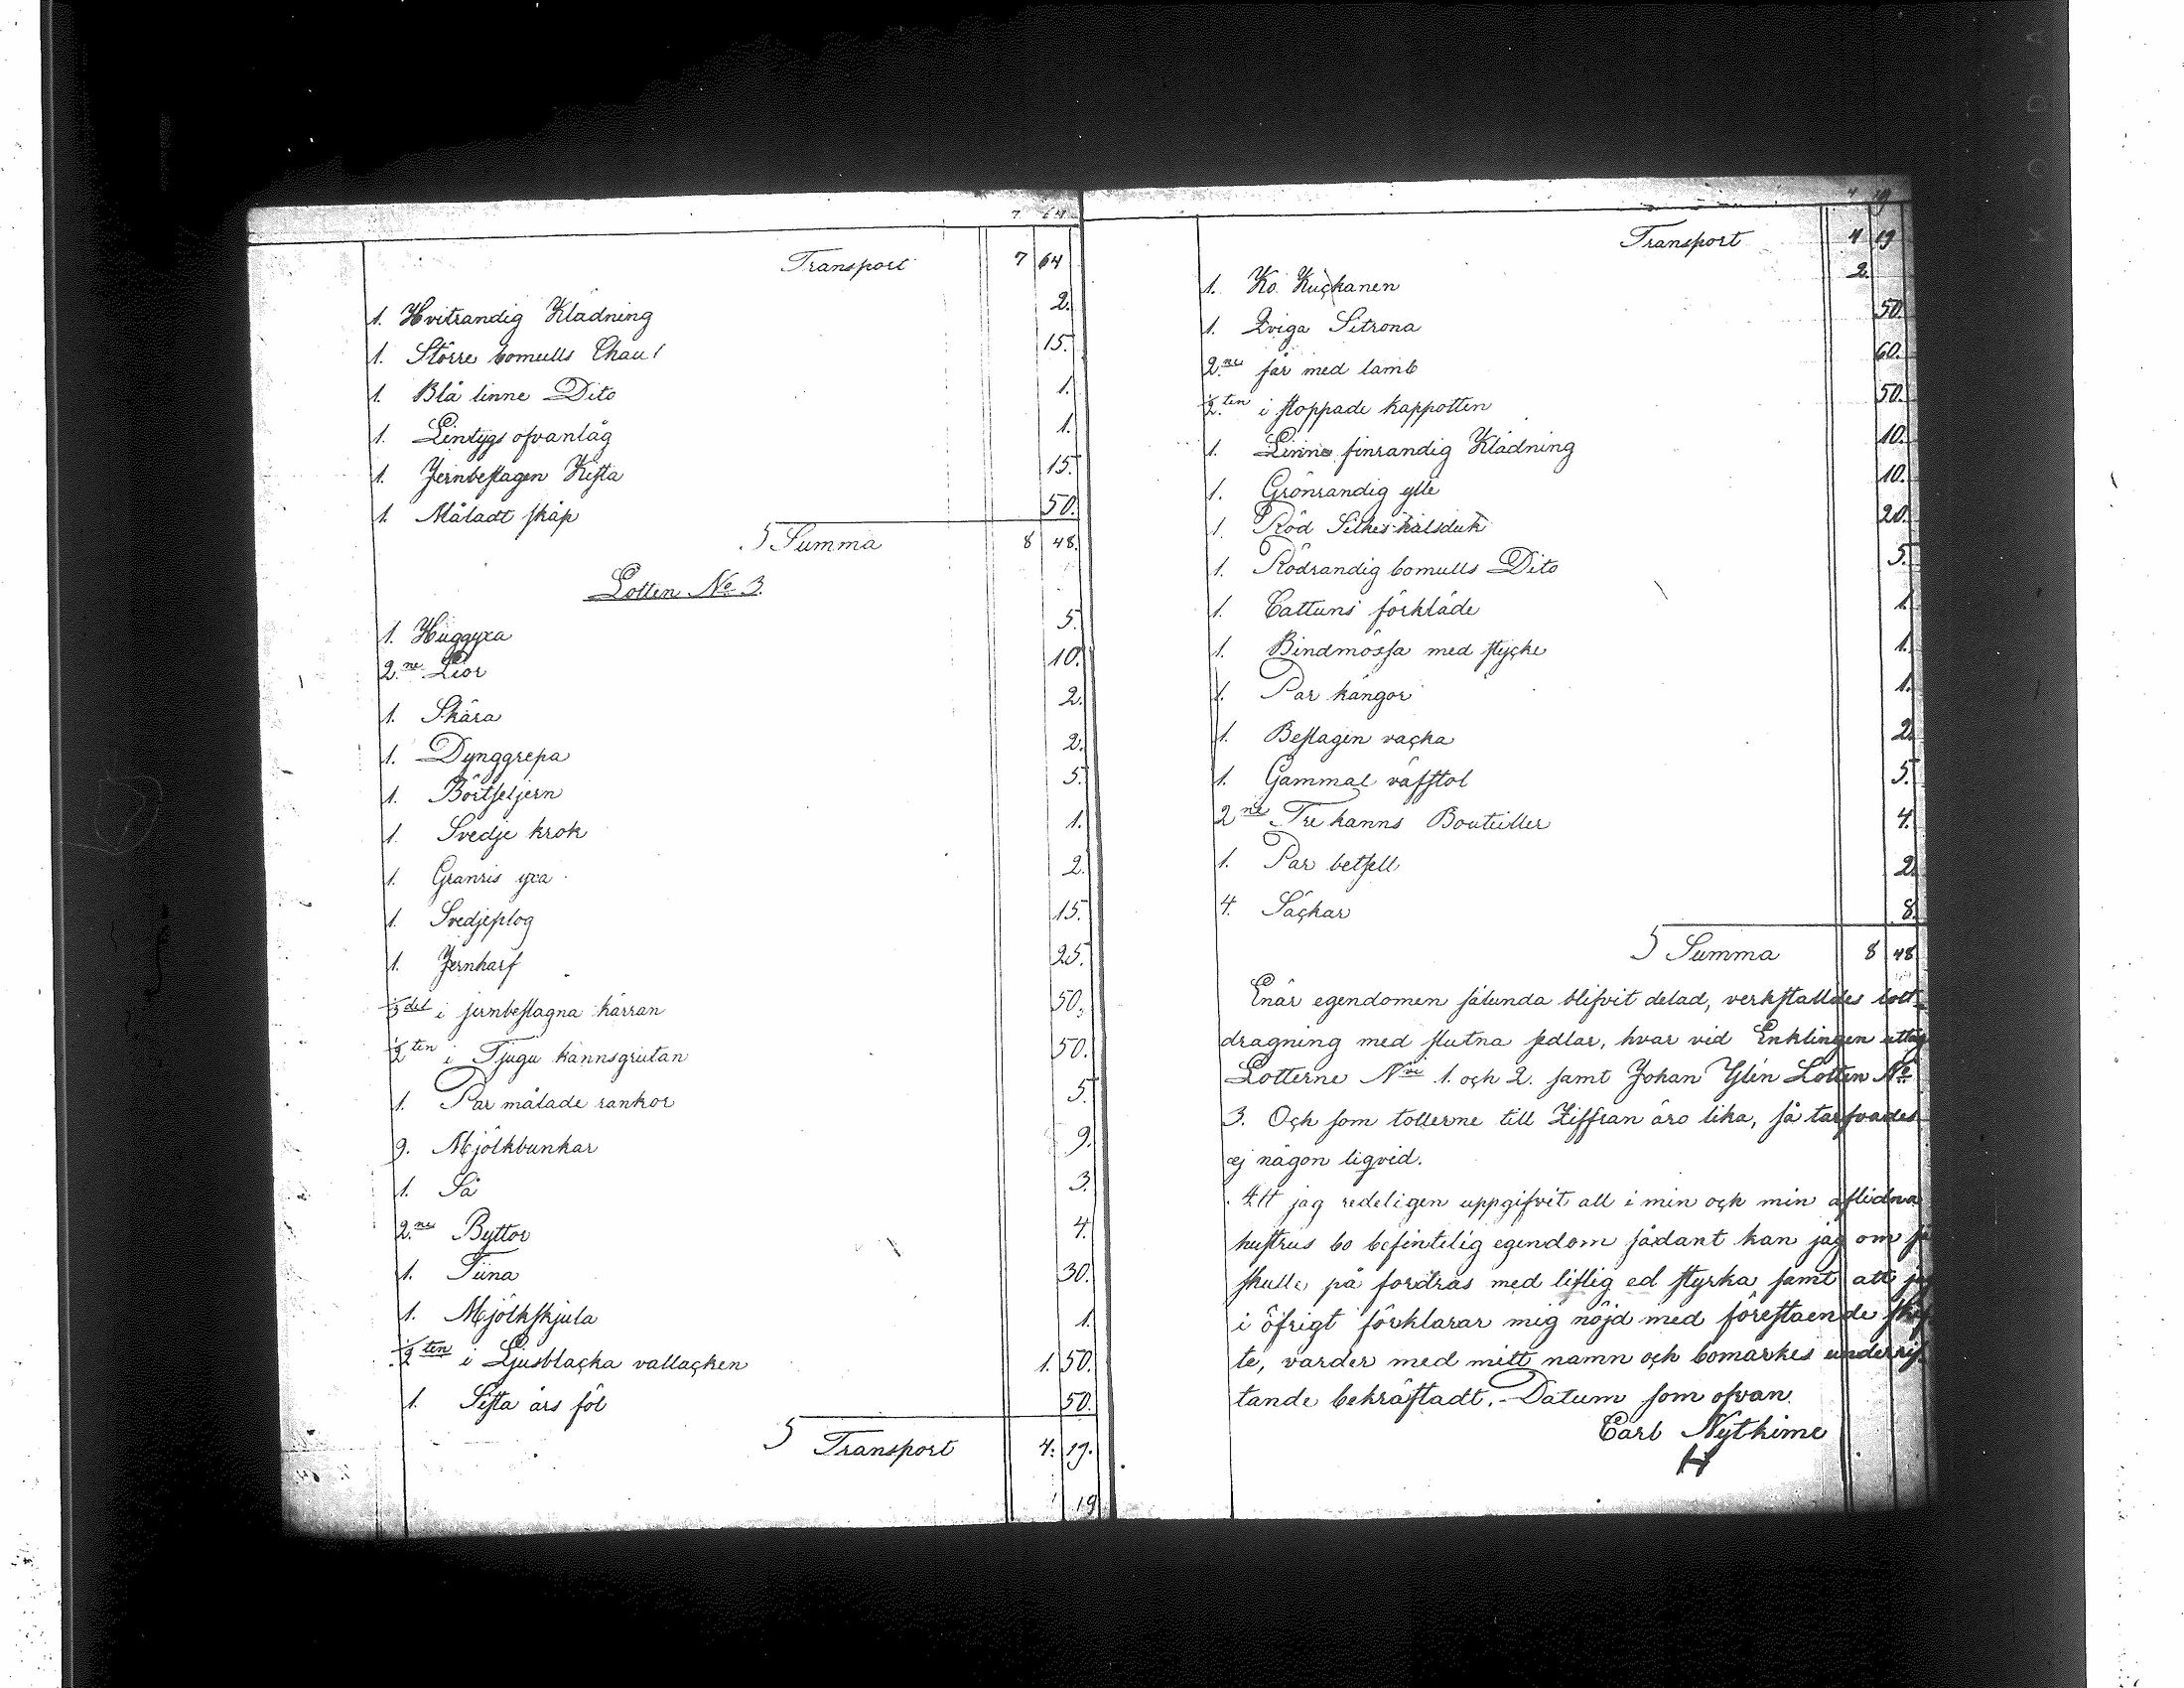 7 64
Transport 7 64
1. Hvitrandig Klädning 2.
1. Större bomulls Chaul 15.
1. Blå linne Dito 1.
1. Lintygs ofvanlåg 1.
1. Jernbeslagen Kista 15.
1. Måladt skåp 50.
Summa 8 48.
Lotten No 3.
1. Huggyxa 5.
2ne Lior 10.
1. Skära 2.
1. Dynggrepa 2.
1. Börtseljern 5.
1. Svedje krok 1.
1. Granris yxa 2.
1. Svedjeplog 15.
1. Jernharf 25.
1/3 del i jernbeslagna kärran 50.
1/2ten i Tjugu kannsgrutan 50.
1. Par målade rankor 5.
9. Mjölkbunkar 9.
1. Så 3.
2ne Byttor 4.
1. Tiina 30.
1. Mjölkskjula 1.
1/2ten i Ljusblacka vallacken 1. 50.
1. Sista års föl 50.
Transport 4. 19.
19
4 19
Transport 4 19
1. Ko Kuckanen 2.
1. Qviga Sitrona 50.
2ne får med lamb 60.
1/2ten i stoppade kappotten 50.
1. Linne finrandig Klädning 10.
1. Grönrandig ylle 10.
1. Röd Silkes halsduk 20.
1. Rödrandig bomulls Dito 5.
1. Cattuns förkläde 1.
1. Bindmössa med stycke 1.
1. Par kängor 1.
1. Beslagen vacka 2.
1. Gammal väfstol 5.
2ne Tre kanns Bouteiller 4.
1. Par betsell 2.
4. Säckar 8.
Summa 8 48
Enär egendomen sålunda blifvit delad, verkställdes lott-
dragning med slutna sedlar, hvar vid Enklingen uttog
Lotterne Nris 1. och 2. samt Johan Ylén Lotten No
3. Och som lotterne till Ziffran äro lika, så tarfvades
ej någon liqvid.
Att jag redeligen uppgifvit all i min och min aflidna
hustrus bo befintelig egendom sådant kan jag om så
skulle på fordras med liflig ed styrka samt att jag
i öfrigt förklarar mig nöjd med förestående skif
te, varder med mitt namn och bomärkes underri
tande bekräftadt. Datum som ofvan.
Carl Nythimo
H
KODA